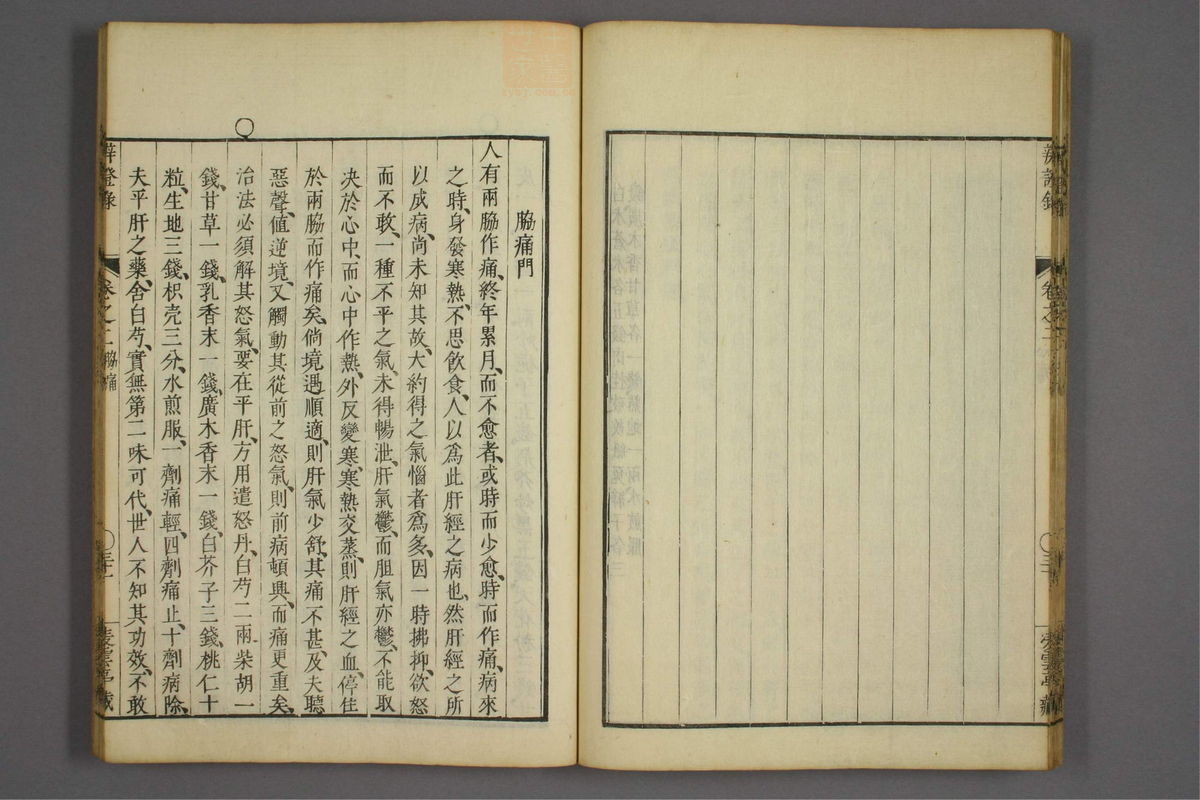 脇痛門
人有兩脇作痛、終年累月、而不愈者、或時而少愈、時而作痛、病來
之時、身發寒熱、不思飲食、人以爲此肝經之病也、然肝經之所
以成病、尚未知其故、大約得之氣惱者爲多、因一時拂抑、欲怒
而不敢、一種不平之氣、未得暢泄、肝氣鬱、而胆氣亦鬱、不能取
决於心中、而心中作熱、外反變寒、寒熱交蒸、則肝經之血、停住
於兩脇而作痛矣、倘境遇順適、則肝氣少舒、其痛不甚、及夫聽
惡聲、值逆境、又觸動其從前之怒氣、則前病頓興、而痛更重矣、
治法必須解其怒氣、要在平肝、方用遣怒丹、白芍二兩柴胡一
錢、甘草一錢、乳香末一錢、廣木香末一錢、白芥子三錢、桃仁十
粒、生地三錢、枳壳三分、水煎服、一劑痛輕、四劑痛止、十劑病除、
夫平肝之藥、舍白芍、實無第二味可代、世人不知其功效、不敢
卷之二 脇痛